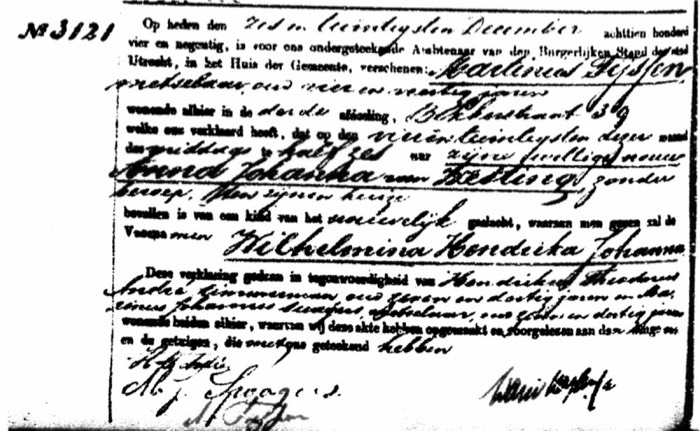 No 3121
Op heden den zes en twintigsten December achttien honderd
vier en negentig, is voor ons ondergeteekende Ambtenaar van den Burgerlijken Stand der stad
Utrecht, in het Huis der Gemeente, verschenen: Martinus Tijssen
metselaar, oud vier en veertig jaren
wonende alhier in de derde afdeeling, 39
welke ons verklaard heeft, dat op den vier en twintigsten dezer maand
des middags te half zes uur zijne wettige vrouw
Anna Johanna van zonder
beroep, ten zijnen huize
bevallen is van een kind van het vrouwelijk geslacht, waaraan men geven zal de
Voornamen Wilhelmina Hendrika Johanna
Deze verklaring gedaan in tegenwoordigheid van Hendrikus Theodorus
André timmerman oud zeven en dertig jaren en Ma
rinus Johannes metselaar, oud en dertig jaren
wonende beiden alhier, waarvan wij deze akte hebben opgemaakt en voorgelezen aan den
en de getuigen, die met ons geteekend hebben
M. J.